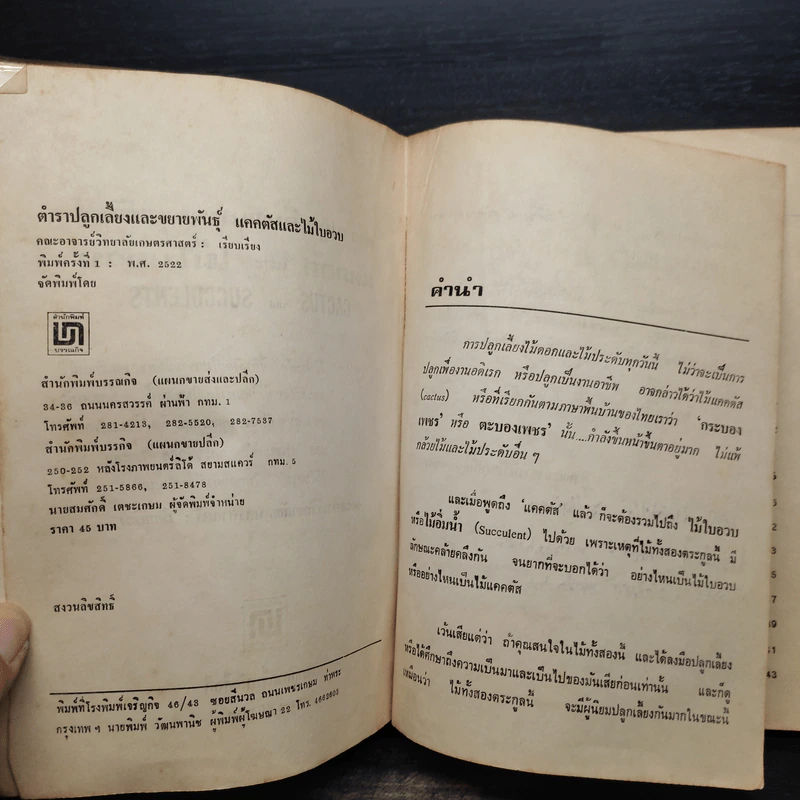 ตำราปลูกเลี้ยงและขยายพันธุ์ แคคตัสและไม้ใบอวบ
คณะอาจารย์วิทยาลัยเกษตรศาสตร์ : เรียบเรียง
พิมพ์ครั้งที่ 1 : พ.ศ. 2522
จัดพิมพ์โดย
สำนักพิมพ์
บรรณกิจ
สำนักพิมพ์บรรณกิจ (แผนกขายส่งและปลีก)
34-36 ถนนนครสวรรค์ ผ่านฟ้า กทม. 1
โทรศัพท์ 281-4213, 282-5520, 282-7537
สำนักพิมพ์บรรกิจ (แผนกขายปลีก)
250-252 หลังโรงภาพยนตร์ลิโด้ สยามสแควร์ กทม. 5
โทรศัพท์ 251-5866, 251-8478
นายสมศักดิ์ เตชะเกษม ผู้จัดพิมพ์จำหน่าย
ราคา 45 บาท
สงวนลิขสิทธิ์
พิมพ์ที่โรงพิมพ์เจริญกิจ 46/43 ซอยสีนวล ถนนเพชรเกษม ท่าพระ
กรุงเทพฯ นายพิมพ์ วัฒนพานิช ผู้พิมพ์ผู้โฆษณา 22 โทร. 4662603
คำนำ
การปลูกเลี้ยงไม้ดอกและไม้ประดับทุกวันนี้ ไม่ว่าจะเป็นการ
ปลูกเพื่องานอดิเรก หรือปลูกเป็นงานอาชีพ อาจกล่าวได้ว่าไม้แคคตัส
(cactus) หรือที่เรียกกันตามภาษาพื้นบ้านของไทยเราว่า 'กระบอง
เพชร' หรือ ตะบองเพชร' นั้น....กำลังขึ้นหน้าขึ้นตาอยู่มาก ไม่แพ้
กล้วยไม้และไม้ประดับอื่น ๆ
และเมื่อพูดถึง 'แคคตัส' แล้ว ก็จะต้องรวมไปถึง ไม้ใบอวบ
หรือไม้อิ่มน้ำ (Succulent) ไปด้วย เพราะเหตุที่ไม้ทั้งสองตระกูลนี้ มี
ลักษณะคล้ายคลึงกัน จนยากที่จะบอกได้ว่า อย่างไหนเป็นไม้ใบอวบ
หรืออย่างไหนเป็นไม้แคคตัส
เว้นเสียแต่ว่า ถ้าคุณสนใจในไม้ทั้งสองนี้ และได้ลงมือปลูกเลี้ยง
หรือได้ศึกษาถึงความเป็นมาและเป็นไปของมันเสียก่อนเท่านั้น และก็ดู
เหมือนว่า ไม้ทั้งสองตระกูลนี้ จะมีผู้นิยมปลูกเลี้ยงกันมากในขณะนี้